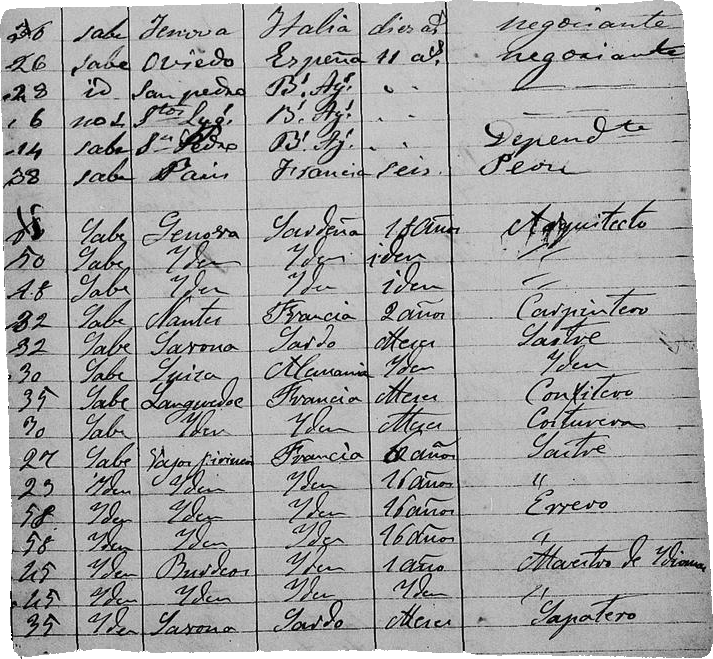 26 sabe Jenova Italia diez añ. negociante
26 sabe Oviedo España 11 añ. negociante
28 id San pedro Bs. Ays.
16 no s Stos Lug. Bs. Ays.
14 sabe Sn Pedro Bs. Ays. Dependte
38 sabe Paris Francia seis. Peon
Sabe Genova Sardeña 18 años Arquitecto
50 Sabe Yden Yden iden "
48 Sabe Yden Yden iden "
32 Sabe Nantes Francia 2 años Carpintero
32 Sabe Savona Sardo Meses Sastre
30 Sabe Suiza Alemania Yden Yden
35 Sabe Languedoc Francia Meses Confitero
30 Sabe Yden Yden Meses Costurera
27 Sabe Vajos pirineos Francia 6 años Sastre
23 Yden Yden Yden 16 años "
58 Yden Yden Yden 16 años Errero
58 Yden Yden Yden 16 años "
45 Yden Burdeos Yden 1 año Maestro de Ydiomas
45 Yden Yden Yden Yden "
35 Yden Savona Sardo Meses Sapatero